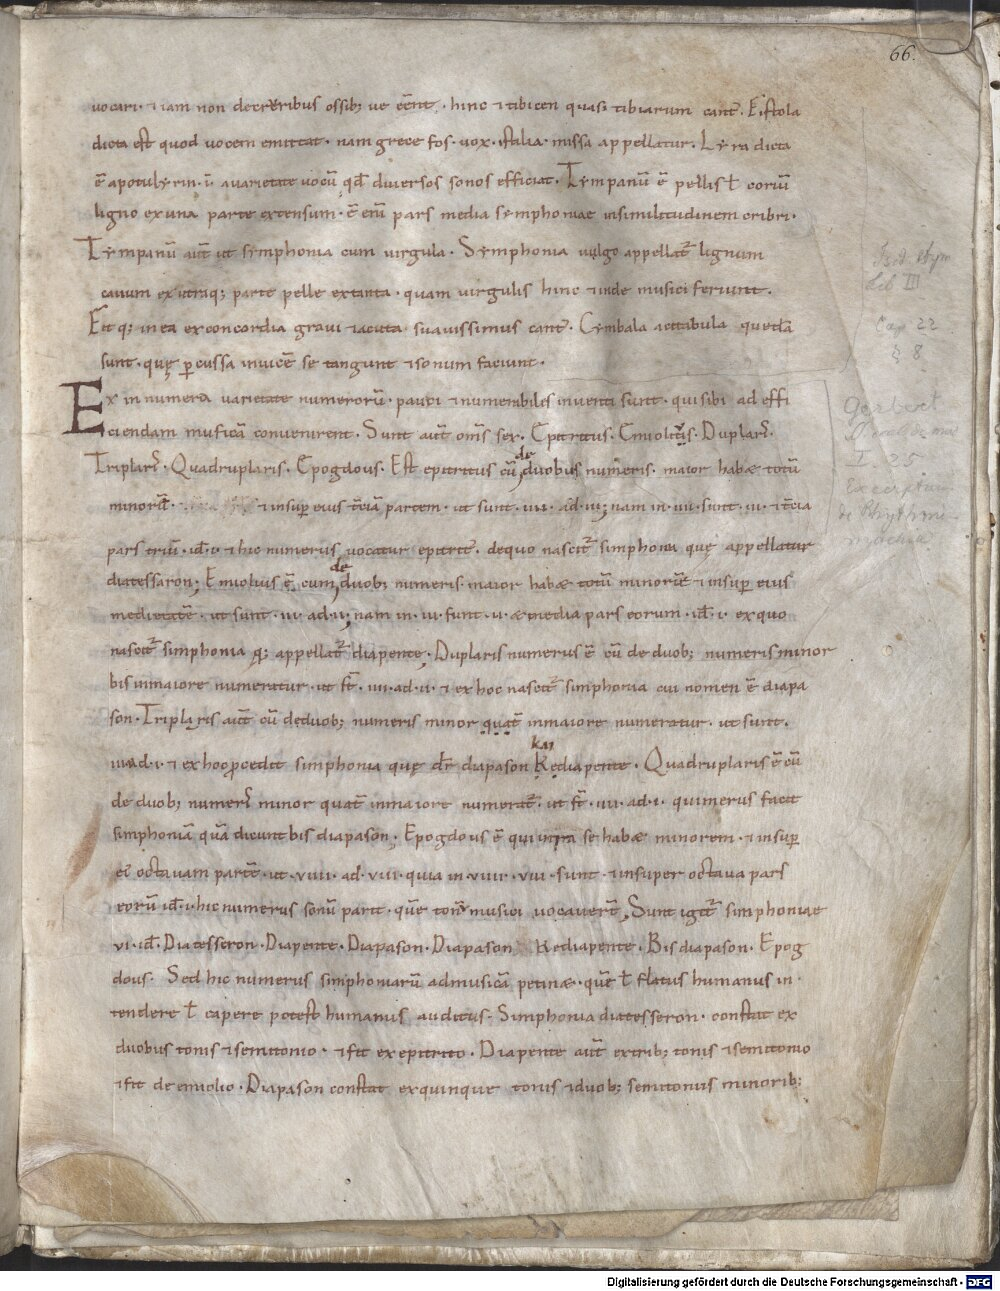 66.
vocari · & iam non de cruribus ossib; ue eēnt · hinc & tibicen quasi tibiarum cant̄. Fistola
dicta est quod vocem emittat · nam grece fos · vox · stalia · missa appellatur. Lyra dicta
ē apotulyrin · i avarietate vocū qd̄ diversos sonos efficiat. Tympanū ē pellis ł coriū
ligno exuna parte extensum · ē enī pars media symphoniae insimilitudinem cribri ·
Tympanū aut̄ ut symphonia cum virgula. Symphonia vulgo appellat̄ lignum
cavum exutraq; parte pelle extenta · quam virgulis hinc & inde musici feriunt.
Fit q; inea exconcordia gravi & acuta suavissimus cant̄. Cymbala acitabula quedā
sunt · quę p̄cussa invicē se tangunt & sonum faciunt.
Ex in numera varietate numerorū · pauci & numerabiles inventi sunt · qui sibi ad effi
ciendam musicā convenirent. Sunt aut̄ om̄s sex. Epitritus. Emiolius. Duplar̄.
Triplar̄. Quadruplaris. Epogdous. Est epitritus cū de duobus numeris · maior hab& totū
minorē · & insup eius t̄ciā partem · ut sunt · iiii · ad · iii; nam in · iiii · sunt · iii · & t̄cia
pars triū · id · i · & hic numerus vocatur epitrit̄. dequo nascit̄ simphonia quę appellatur
diatessaron; Emiolius ē cum de duob; numeris maior hab& totū minorē & insup eius
medietatē · ut sunt · iii · ad · ii; nam in · iii · sunt · ii · & media pars eorum · id · i · exquo
nascit̄ simphonia q; appellat̄ diapente. Duplaris numerus ē cū de duob; numeris minor
bis inmaiore numeratur · ut st̄ · iiii · ad · ii · & ex hoc nascit̄ simphonia cui nomen ē diapa
son. Triplaris aut̄ cū deduob; numeris minor quat̄ inmaiore numeratur · ut sunt ·
iii ad · i · & ex hoc procedit simphonia quę dr̄ diapason kai Kediapente. Quadruplaris ē cū
de duob; numer̄ minor quat̄ inmaiore numerat̄ · ut st̄ · iiii · ad · i · qui merus facit
simphoniā quā dicunt bis diapason; Epogdous ē qui intra se hab& minorem · & insup
ei octavam partē · ut · viiii · ad · viii · quia in viiii · viii · sunt · & insuper octava pars
eorū id · i · hic numerus sonū parit · quē tonū musici vocavert̄. Sunt igit̄ simphoniae
vi · id · Diatesseron · Diapente · Diapason · Diapason Kediapente. Bisdiapason. Epog
dous. Sed hic numerus simphoniarū admusicā petin& · quē ł flatus humanus in ·
tendere ł capere potest humanus auditus. Simphonia diatesseron · constat ex
duobus tonis & semitonio · & fit ex epitrito. Diapente aut̄ extrib; tonis & semitonio
& fit de emiolio. Diapason constat exquinque tonis & duob; semitoniis minorib;
Isid. Etym
Lib III
Cap. 22
§ 8
Gerbert
I. 25
Digitalisierung gefördert durch die Deutsche Forschungsgemeinschaft · DFG